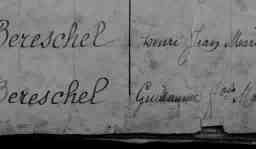 Bereschel Henri Jean Marie
Bereschel Guillaume Jois Ma